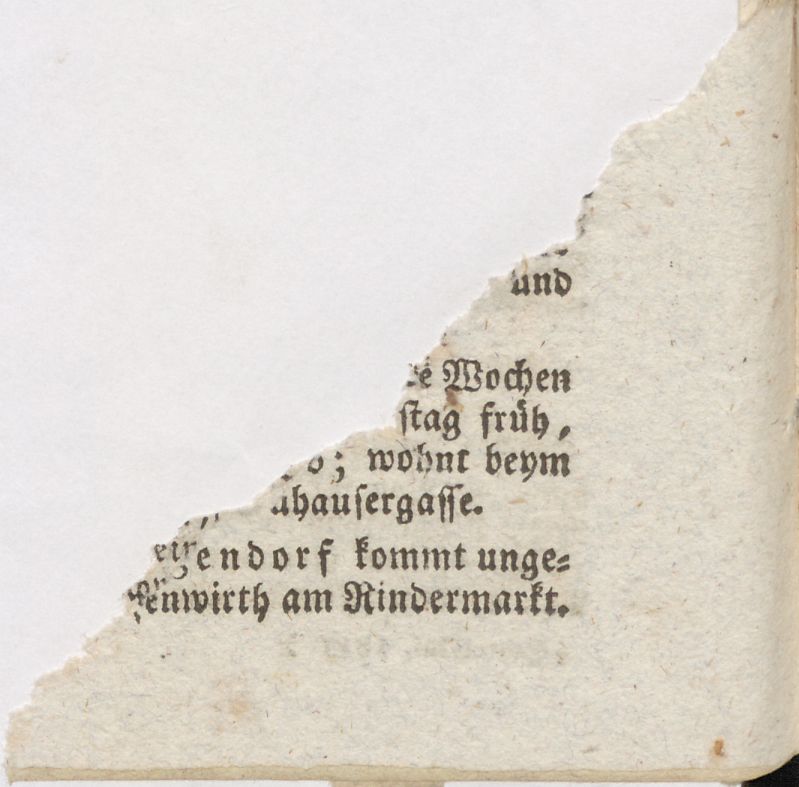 und
Wochen
ſtag früh,
; wohnt beym
uhauſergaſſe.
endorf kommt unge⸗
enwirth am Rindermarkt.